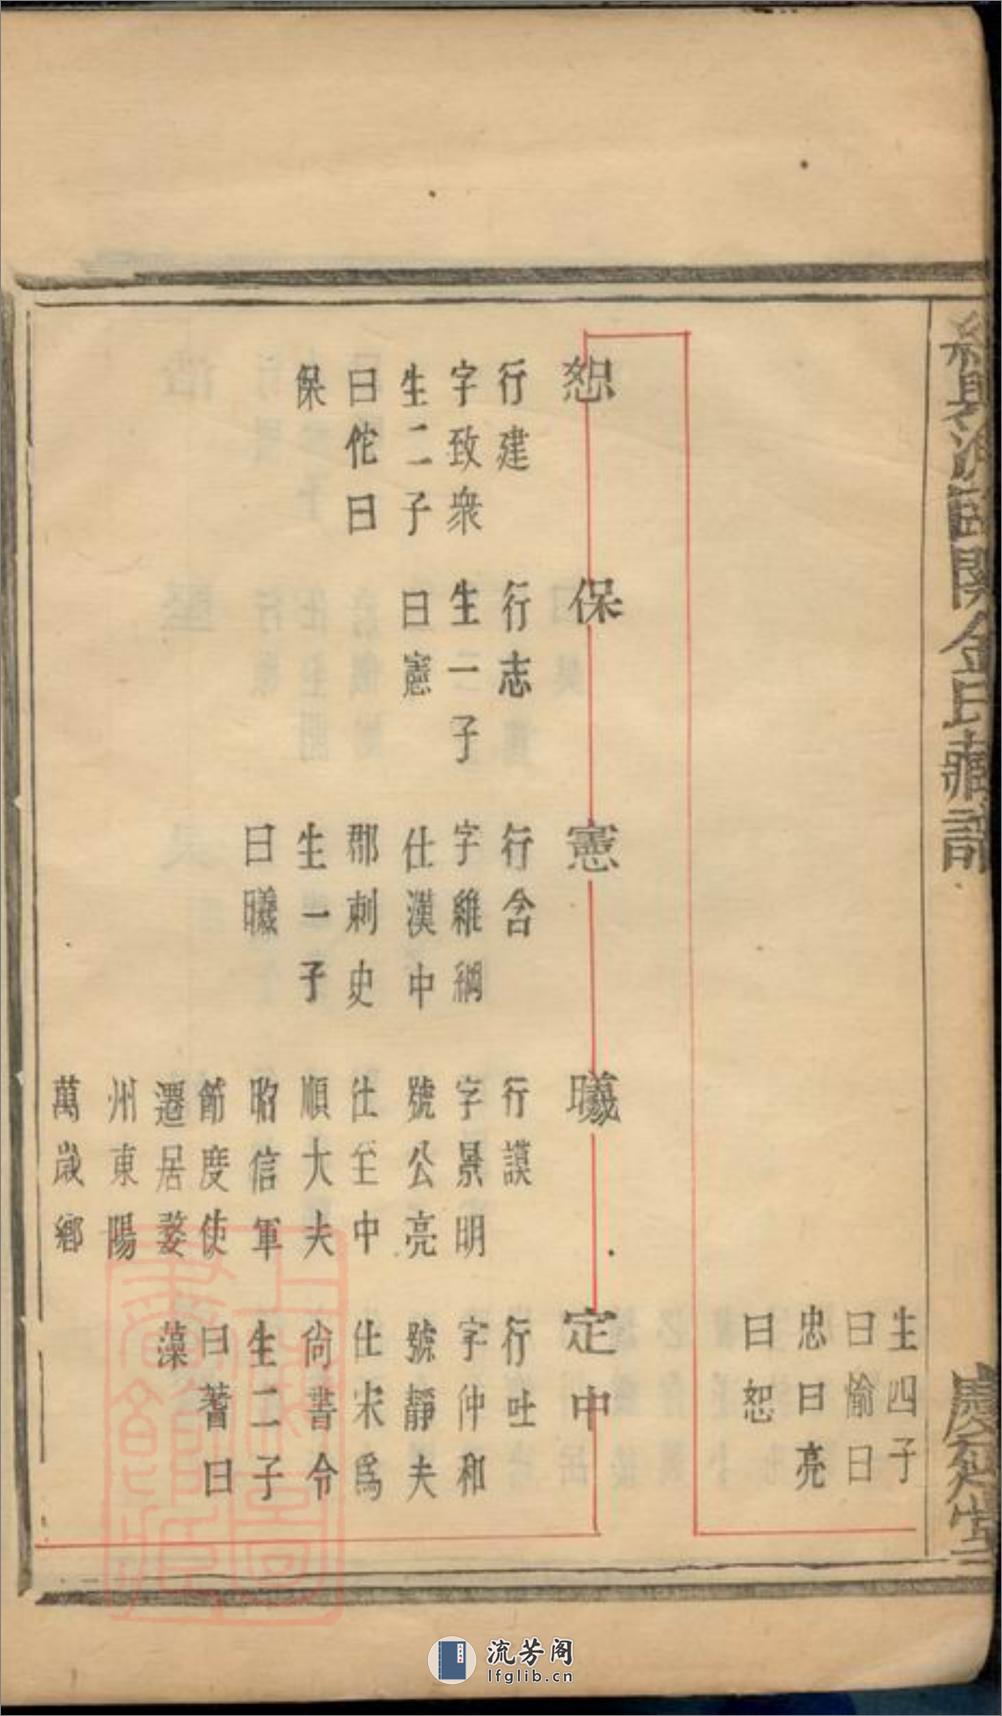 生四子
曰愉曰
忠曰亮
曰恕
恕
行建
字致衆
生二子
曰佗曰
保
保
行志
生一子
曰憲
憲
行含
字維綱
仕漢中
郡刺史
生一子
曰曦
曦
行謨
字景明
號公亮
仕至中
順大夫
昭信軍
節度使
遷居婺
州東陽
萬歲鄉
定中
行吐
字仲和
號靜夫
仕宋爲
尙書令
生二子
曰著曰
藻
上海圖書館藏
流芳阁
lfglib.cn